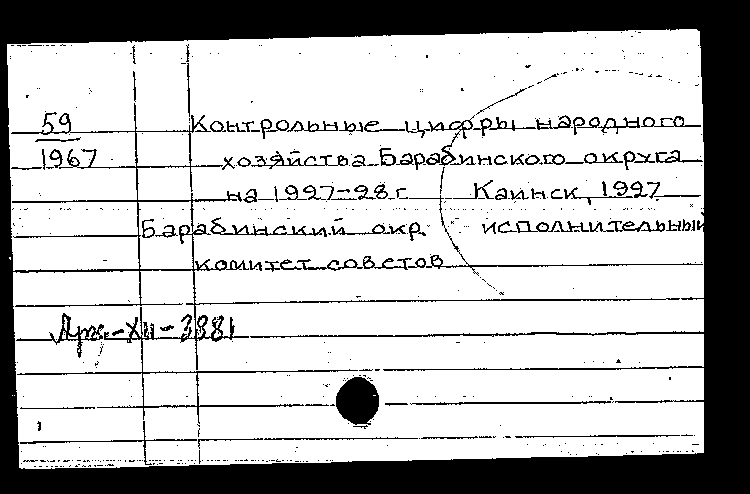 59 Контрольные цифры народного
1967 хозяйства Барабинского округа
на 1927-28 г Каинск, 1927
Барабинский окр. исполнительный
комитет советов
XII-3881